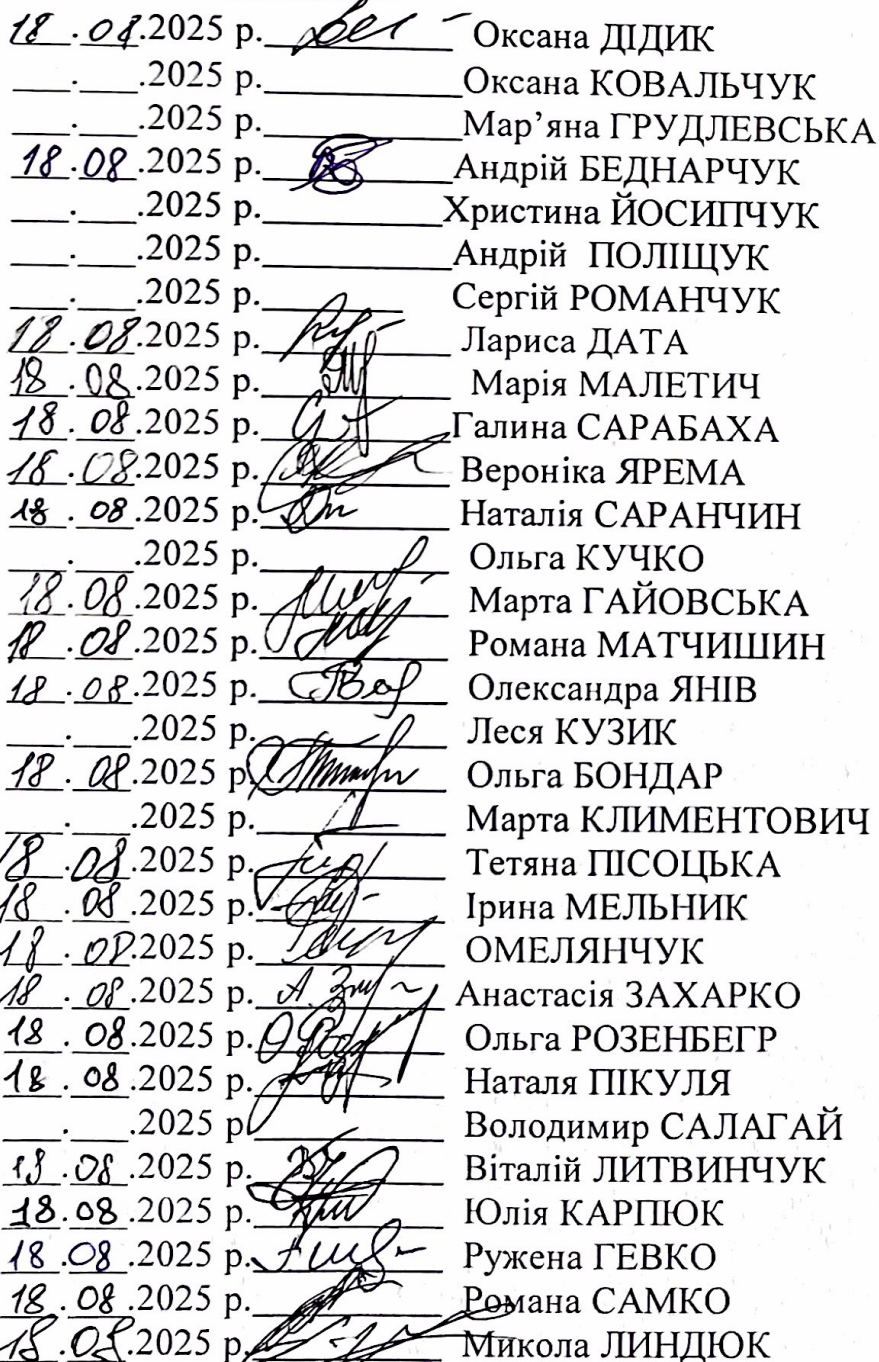 18.08.2025 р. Оксана ДІДИК
___.___.2025 р.____________Оксана КОВАЛЬЧУК
___.___.2025 р.____________Мар’яна ГРУДЛЕВСЬКА
18.08.2025 р. Андрій БЕДНАРЧУК
___.___.2025 р.____________Христина ЙОСИПЧУК
___.___.2025 р.____________Андрій ПОЛІЩУК
___.___.2025 р.__________ Сергій РОМАНЧУК
18.08.2025 р. Лариса ДАТА
18.08.2025 р. Марія МАЛЕТИЧ
18.08.2025 р. Галина САРАБАХА
18.08.2025 р. Вероніка ЯРЕМА
18.08.2025 р. Наталія САРАНЧИН
___.___.2025 р.____________ Ольга КУЧКО
18.08.2025 р. Марта ГАЙОВСЬКА
18.08.2025 р. Романа МАТЧИШИН
18.08.2025 р. Олександра ЯНІВ
___.___.2025 р.____________ Леся КУЗИК
18.08.2025 р. Ольга БОНДАР
___.___.2025 р.____________ Марта КЛИМЕНТОВИЧ
18.08.2025 р. Тетяна ПІСОЦЬКА
18.08.2025 р. Ірина МЕЛЬНИК
18.08.2025 р. ОМЕЛЯНЧУК
18.08.2025 р. Анастасія ЗАХАРКО
18.08.2025 р. Ольга РОЗЕНБЕГР
18.08.2025 р. Наталя ПІКУЛЯ
___.___.2025 р.____________ Володимир САЛАГАЙ
13.08.2025 р. Віталій ЛИТВИНЧУК
18.08.2025 р. Юлія КАРПЮК
18.08.2025 р. Ружена ГЕВКО
18.08.2025 р. Романа САМКО
18.08.2025 р. Микола ЛИНДЮК